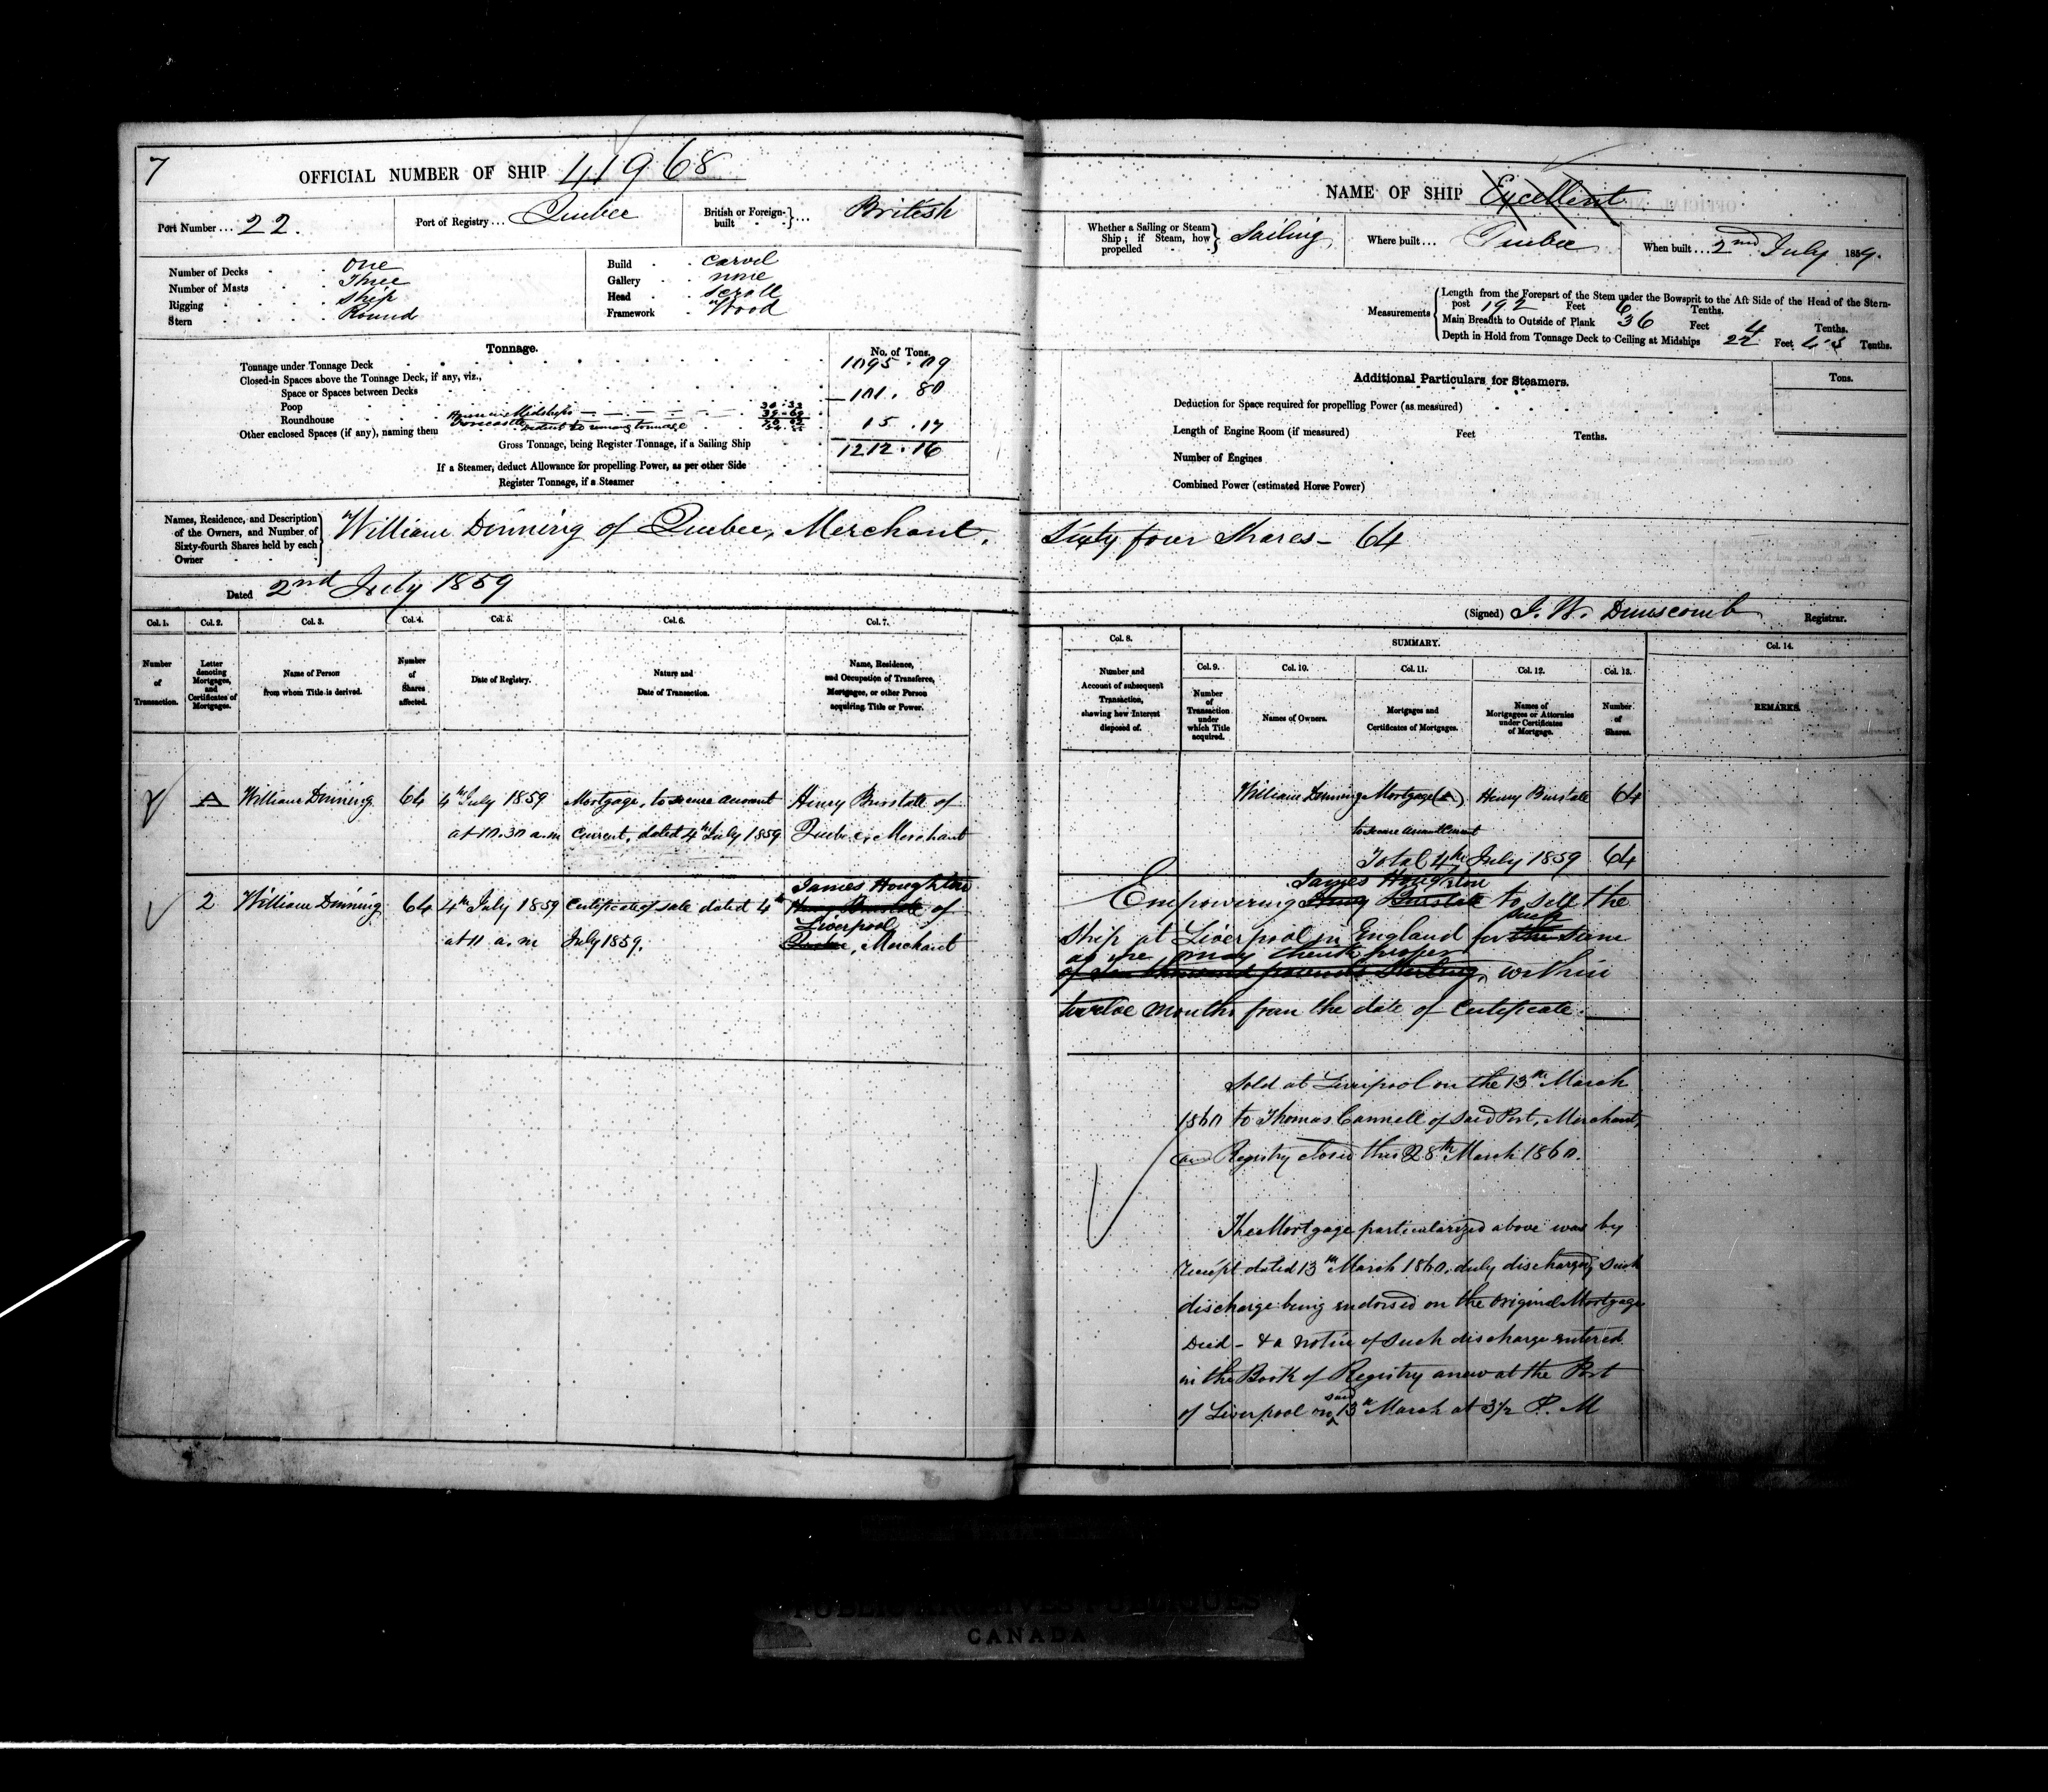 7
OFFICIAL NUMBER OF SHIP 41968
Port Number ... 22.
Port of Registry ... Quebec
British or Foreign-built ... British
Number of Decks One
Number of Masts Three
Rigging Ship
Stern Round
Build Carvel
Gallery none
Head Scroll
Framework Wood
Tonnage.
No. of Tons.
Tonnage under Tonnage Deck 1095.09
Closed-in Spaces above the Tonnage Deck, if any, viz.,
Space or Spaces between Decks
Poop 101.80
Roundhouse
Other enclosed Spaces (if any), naming them 15.17
Gross Tonnage, being Register Tonnage, if a Sailing Ship 1212.16
If a Steamer, deduct Allowance for propelling Power, as per other Side
Register Tonnage, if a Steamer
Names, Residence, and Description of the Owners, and Number of Sixty-fourth Shares held by each Owner
William Dinning of Quebec, Merchant,
Dated 2nd July 1859
Col. 1. Col. 2. Col. 3. Col. 4. Col. 5. Col. 6. Col. 7.
Number of Transaction.
Letter denoting Mortgages, and Certificates of Mortgages.
Name of Person from whom Title is derived.
Number of Shares affected.
Date of Registry.
Nature and Date of Transaction.
Name, Residence, and Occupation of Transferee, Mortgagee, or other Person acquiring Title or Power.
A William Dinning 64 4th July 1859 Mortgage, to secure account Henry Burstall of
at 10.30 a.m current, dated 4th July 1859 Quebec, Merchant
James Houghton
2 William Dinning 64 4th July 1859 Certificate of sale dated 4th Henry Burstall of
Liverpool
at 11 a.m July 1859. Quebec, Merchant
NAME OF SHIP Excellent
Whether a Sailing or Steam Ship; if Steam, how propelled Sailing
Where built ... Quebec
When built ... 2nd July 1859.
Measurements
Length from the Forepart of the Stem under the Bowsprit to the Aft Side of the Head of the Stern-
post 192 Feet 6 Tenths.
Main Breadth to Outside of Plank 36 Feet 4 Tenths.
Depth in Hold from Tonnage Deck to Ceiling at Midships 22 Feet Tenths.
Additional Particulars for Steamers.
Tons.
Deduction for Space required for propelling Power (as measured)
Length of Engine Room (if measured) Feet Tenths.
Number of Engines
Combined Power (estimated Horse Power)
Sixty four Shares - 64
(Signed) J. W. Dunscomb Registrar.
Col. 8. SUMMARY. Col. 14.
Col. 9. Col. 10. Col. 11. Col. 12. Col. 13.
Number and Account of subsequent Transaction, shewing how Interest disposed of.
Number of Transaction under which Title acquired.
Names of Owners.
Mortgages and Certificates of Mortgages.
Names of Mortgagees or Attornies under Certificates of Mortgage.
Number of Shares.
REMARKS.
William Dinning Mortgage (A) Henry Burstall 64
to secure account current
Total 4th July 1859 64
James Houghton
Empowering Henry Burstall to sell the
such
Ship at Liverpool in England for the sum
as he may think proper
of ten thousand pounds Sterling, within
twelve months from the date of Certificate.
Sold at Liverpool on the 13th March
1860 to Thomas Cannell of said Port, Merchant,
and Registry closed this 28th March 1860.
The Mortgage particularized above was by
receipt dated 13th March 1860, duly discharged, such
discharge being endorsed on the original Mortgage
Deed - & a notice of such discharge entered
in the Book of Registry anew at the Port
said
of Liverpool on 13th March at 3½ P. M
PUBLIC ARCHIVES PUBLIQUES
CANADA